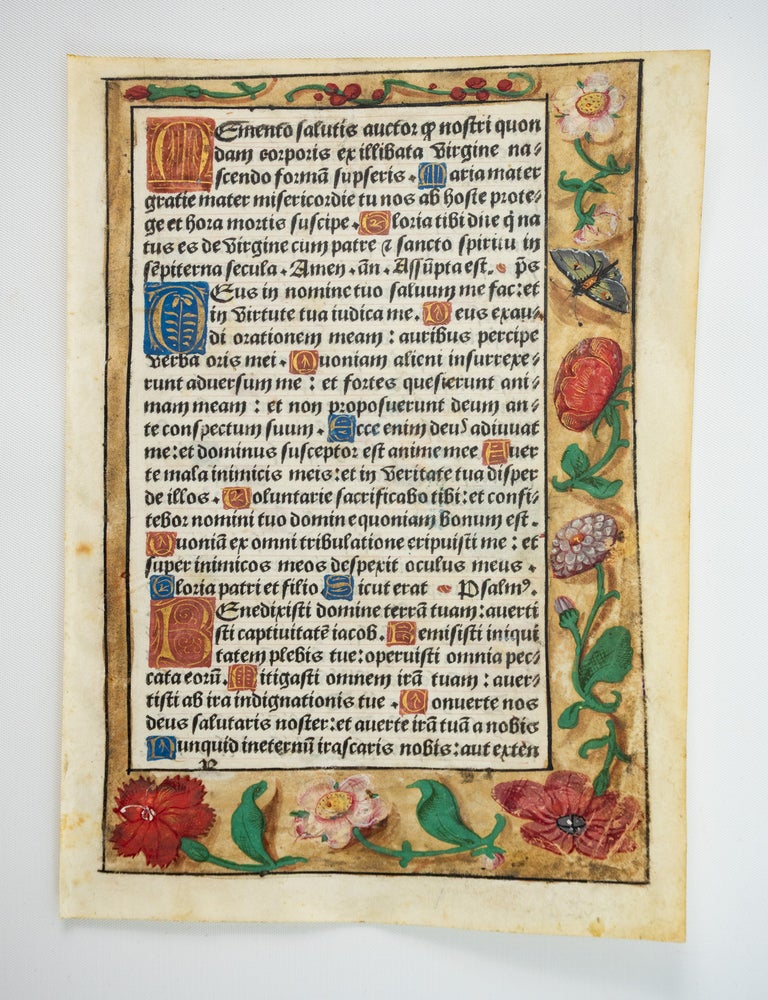 Memento salutis auctor ꝙ nostri quon⸗
dam corporis ex illibata Virgine na⸗
scendo formã sũpseris. Maria mater
gratie mater misericordie tu nos ab hoste prote⸗
ge et hora mortis suscipe. Gloria tibi dñe q̃ na
tus es de Virgine cum patre ⁊ sancto spiritu in
sẽpiterna secula. Amen. an. Assũpta est. p̃s
Deus in nomine tuo saluum me fac: et
in Virtute tua iudica me. Deus exau⸗
di orationem meam: auribus percipe
Verba oris mei. Quoniam alieni insurrexe⸗
runt aduersum me: et fortes quesierunt ani⸗
mam meam: et non proposuerunt deum an⸗
te conspectum suum. Ecce enim deus adiuuat
me: et dominus susceptor est anime mee Auer
te mala inimicis meis: et in Veritate tua disper
de illos. Voluntarie sacrificabo tibi: et confi⸗
tebor nomini tuo domine quoniam bonum est.
Quoniã ex omni tribulatione eripuisti me: et
super inimicos meos despexit oculus meus.
Gloria patri et filio. Sicut erat Psalmꝰ.
Benedixisti domine terrã tuam: auerti
sti captiuitatẽ iacob. Remisisti iniqui
tatem plebis tue: operuisti omnia pec⸗
cata eorũ. Mitigasti omnem irã tuam: auer⸗
tisti ab ira indignationis tue. Conuerte nos
deus salutaris noster: et auerte irã tuã a nobis
Nunquid in eternũ irascaris nobis: aut exten